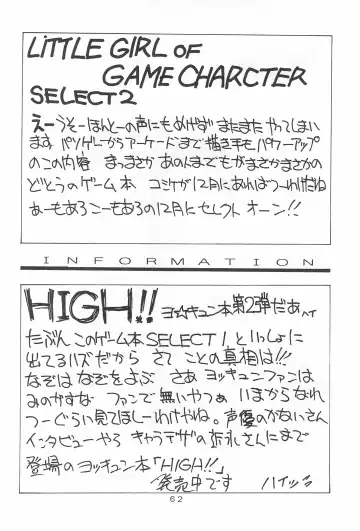 LiTTLE GIRL OF
GAME CHARCTER
SELECT2
えーうそーほんとーの声にもめげず またまた やってしまい
ます パソゲーからアーケードまで描き手も パワーアップ
のこの内容 まっまさか あのんまでもがまさかまさかの
どとうのゲーム本 コミケが12月にあればつーわけだね
あーもあろこーもあろの12月にセレクト オーン!!
INFORMATION
HIGH!! ヨッキュン本第2弾だあ
たぶん このゲーム本SELECT1 といっしょに
出てるハズだから さて ことの真相は!!!
なぞは なぞをよぶ さあ ヨッキュンファンは
みのがすな ファンで無いやつぁ いまからなれ
つーぐらい見てほしーわけやね。声優のかないさん
インタビューやら キャラデザの さんにまで
登場のヨッキュン本「HIGH!!」
発売中です ハイッ
62